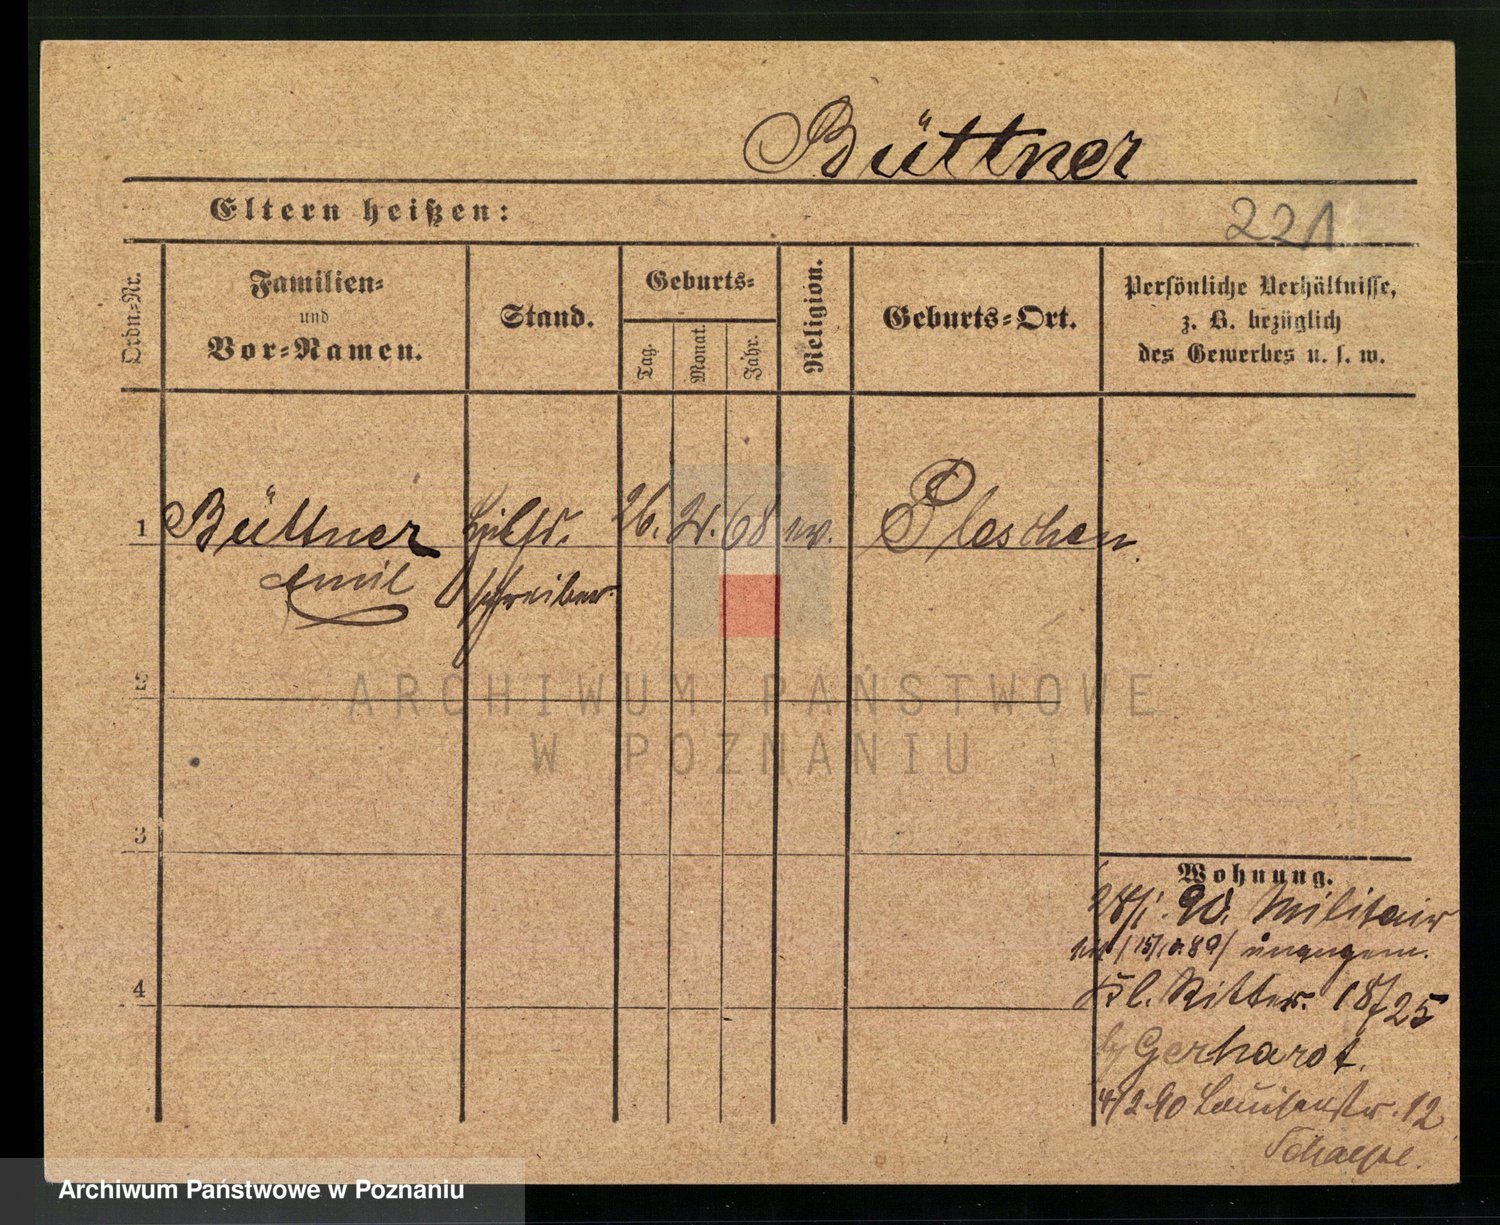 Büttner
Eltern heißen:
221
Ordn.=Nr.
Familien=
und
Vor=Namen.
Stand.
Geburts=
Tag.
Monat.
Jahr.
Religion.
Geburts=Ort.
Persönliche Verhältnisse,
z. B. bezüglich
des Gewerbes u. s. w.
1
Büttner
Emil
Hülfs.
schreiber.
26. 68 ev.
Pleschen
2
3
4
Wohnung.
90. Militair
unangem.
Kl. Ritter. 18/25
Gerhardt.
4/2 90 Louisenstr. 12
ARCHIWUM PAŃSTWOWE
W POZNANIU
Archiwum Państwowe w Poznaniu